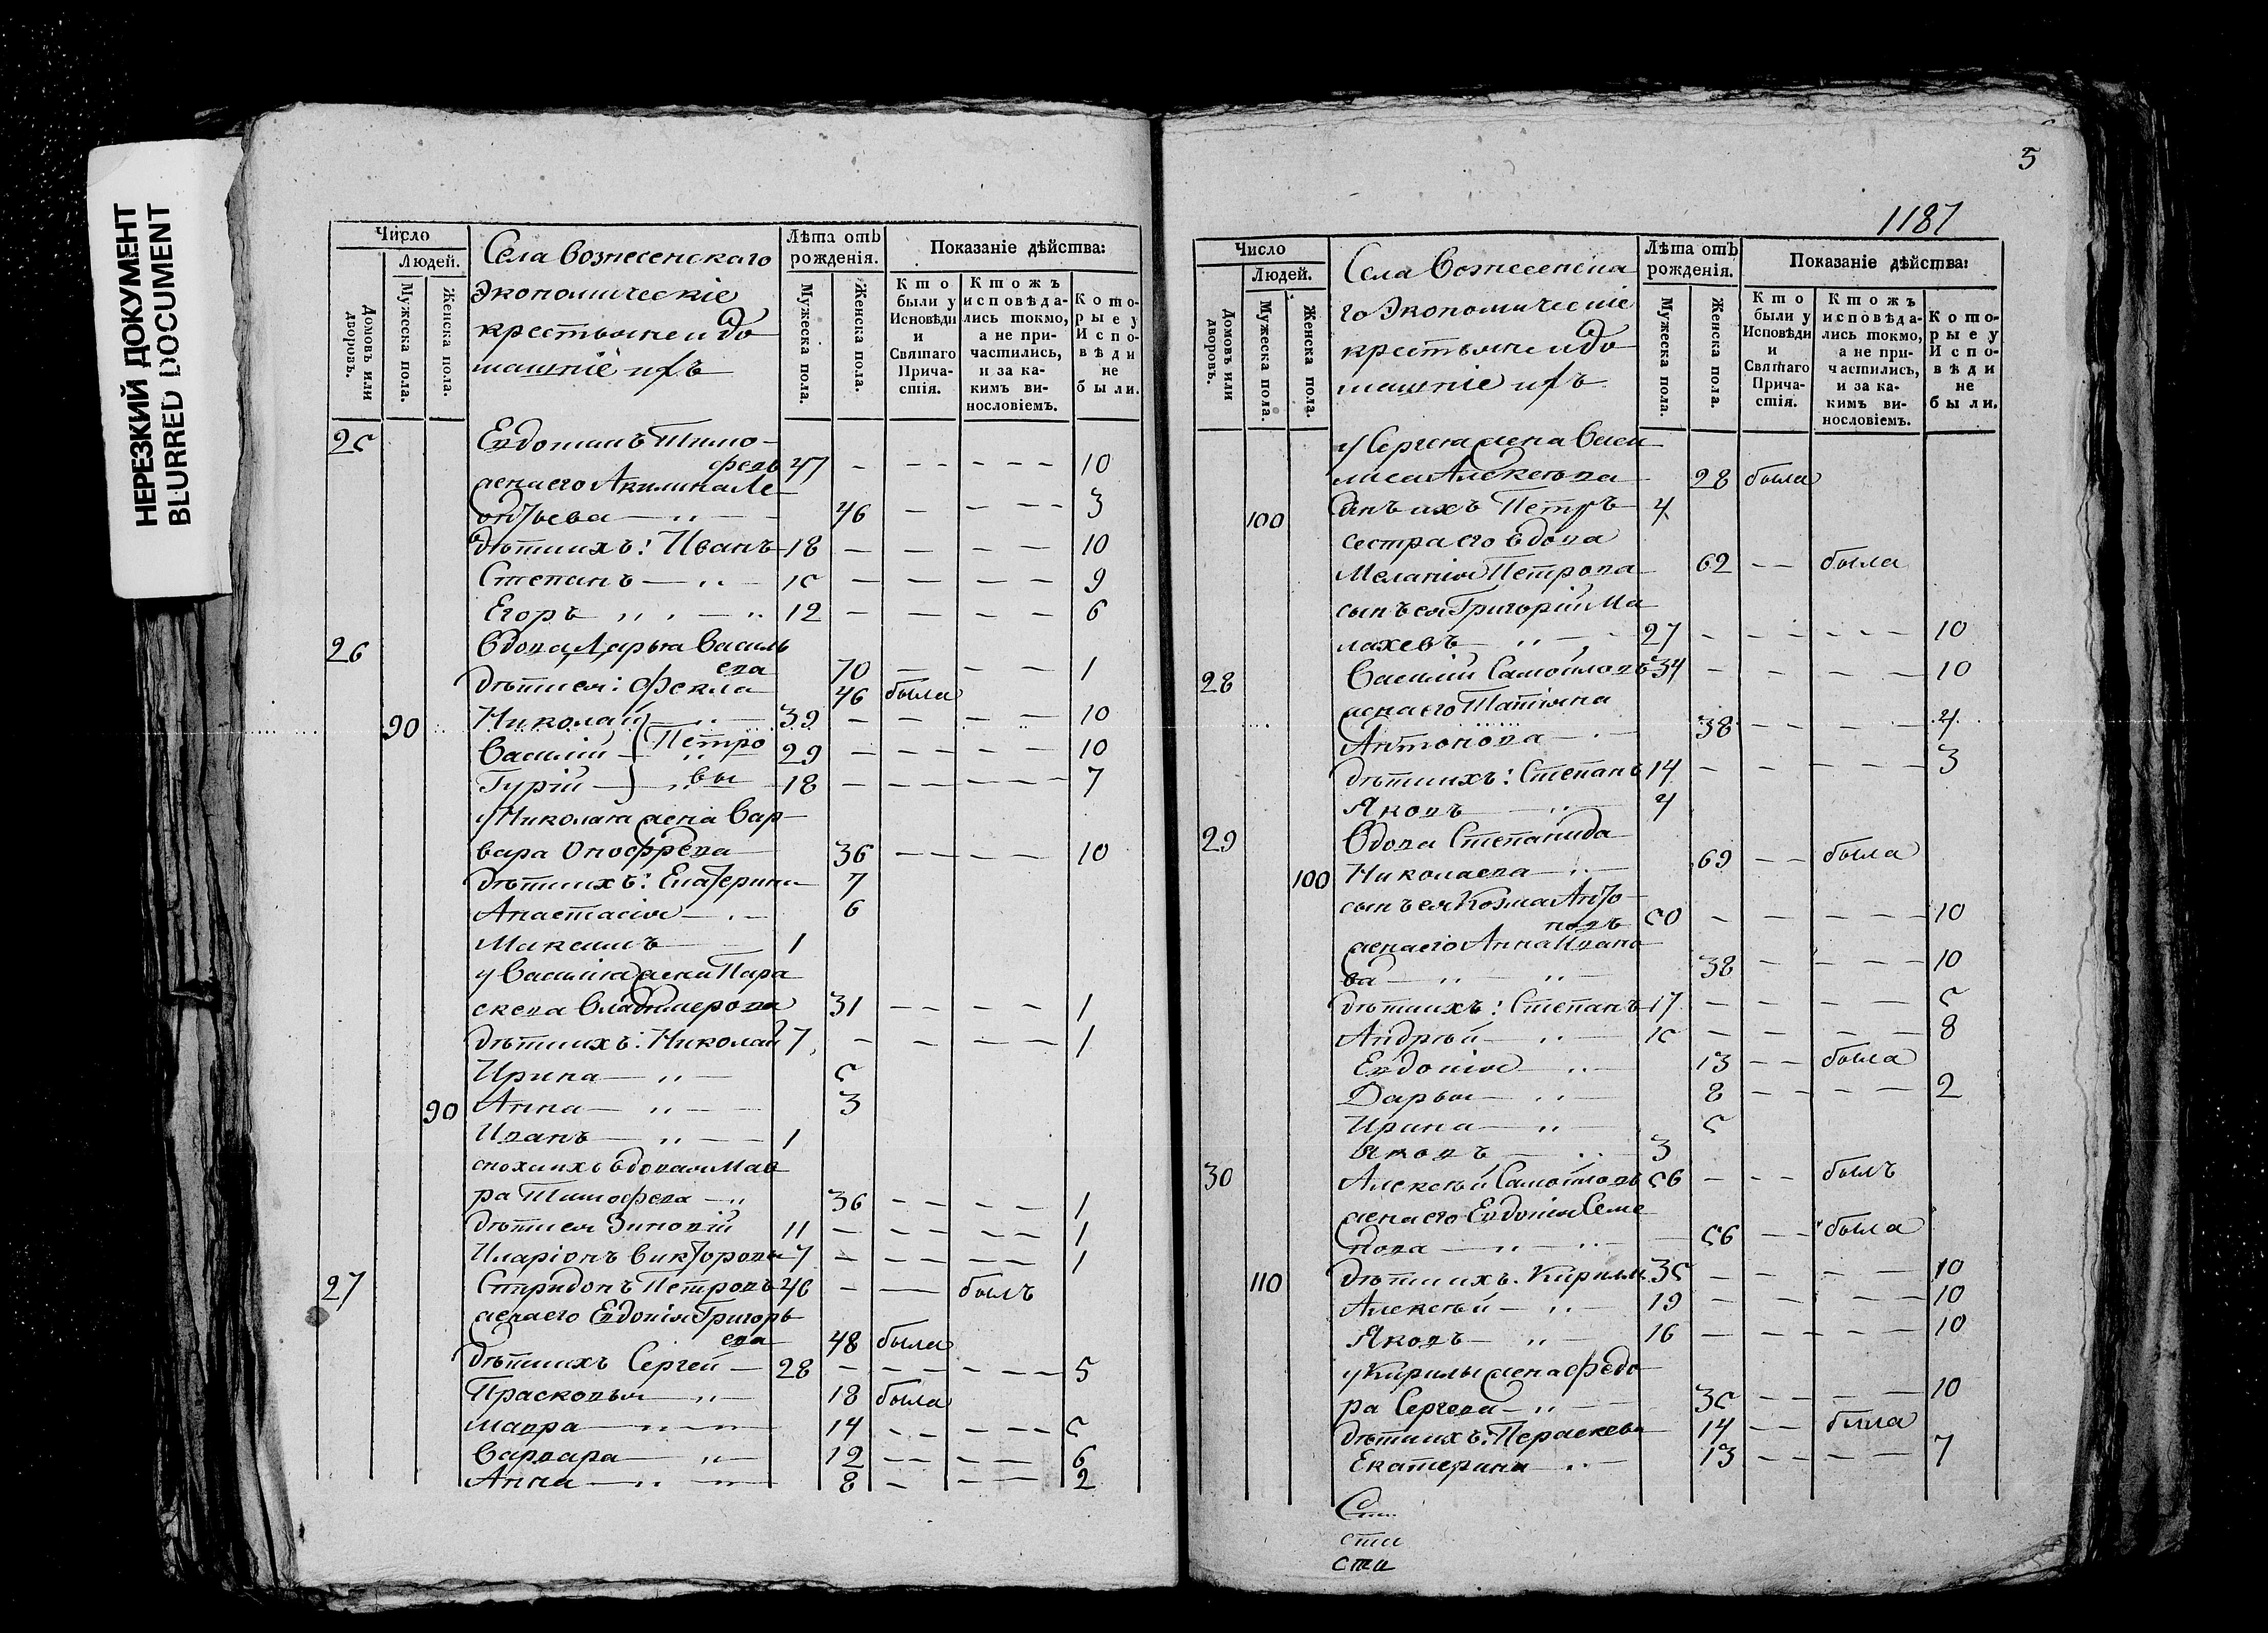 НЕРЕЗКИЙ ДОКУМЕНТ
BLURRED DOCUMENT
Число
Людей.
Домовъ или дворовъ.
Мужеска пола.
Женска пола.
Села Вознесенскаго
Экономическіе
крестьяне и до
машніе ихъ
Лѣта отъ рожденія.
Мужеска пола.
Женска пола.
Показаніе дѣйства:
Кто были у Исповѣди и Святаго Причастія.
Ктожъ исповѣдались токмо, а не причастились, и за какимъ винословіемъ.
Которые у Исповѣди не были.
25 Евдокимъ Тимо
феевъ 47 10
жена его Акилина Ле
онтьева 46 3
дѣти ихъ: Иванъ 18 10
Степанъ 15 9
Егоръ 12 6
26 Вдова Дарья Василь
ева 70 1
дѣти ея: Фекла 46 была
90 Николай 39 10
Василій Петро 29 10
Гурій вы 18 7
у Николая жена Вар
вара Онофрева 36 10
дѣти ихъ: Екатерина 7
Анастасія 6
Максимъ 1
у Василія жена Пара
скева Владимерова 31 1
дѣти ихъ: Николай 7 1
Ирина 5
90 Анна 3
Иванъ 1
сноха ихъ вдовая Мав
ра Тимофева 36 1
дѣти ея Зиновій 11 1
Иларіонъ Викторовы 7 1
27 Спиридонъ Петровъ 46 былъ
жена его Евдокія Григорь
ева 48 была
дѣти ихъ Сергей 28 5
Прасковья 18 была
Мавра 14 5
Варвара 12 6
Анна 8 2
5
1187
Число
Людей.
Домовъ или дворовъ.
Мужеска пола.
Женска пола.
Села Вознесенска
го Экономическіе
крестьяне и до
машніе ихъ
Лѣта отъ рожденія.
Мужеска пола.
Женска пола.
Показаніе дѣйства:
Кто были у Исповѣди и Святаго Причастія.
Ктожъ исповѣдались токмо, а не причастились, и за какимъ винословіемъ.
Которые у Исповѣди не были.
у Сергея жена Васи
лиса Алексеева 28 была
100 сынъ ихъ Петръ 4
сестра его вдова
Меланія Петрова 62 была
сынъ ея Григорій Ма
лахевъ 27 10
28 Василій Самойловъ 34 10
жена его Татіяна
Антонова 38 4
дѣти ихъ: Степанъ 14 3
Яковъ 4
29 Вдова Степанида
100 Николаева 69 была
сынъ ея Козма Анто
новъ 50 10
жена его Анна Ивано
ва 38 10
дѣти ихъ: Степанъ 17 5
Андрѣй 15 8
Евдокія 13 была
Дарья 8 2
Ирина 5
Яковъ 3
30 Алексѣй Самойловъ 56 былъ
жена его Евдокія Семе
нова 56 была
110 дѣти ихъ: Кирилъ 35 10
Алексѣй 19 10
Яковъ 16 10
у Кирилы жена Федо
ра Сергева 35 10
дѣти ихъ: Пераскева 14 была
Екатерина 13 7
сти
сти